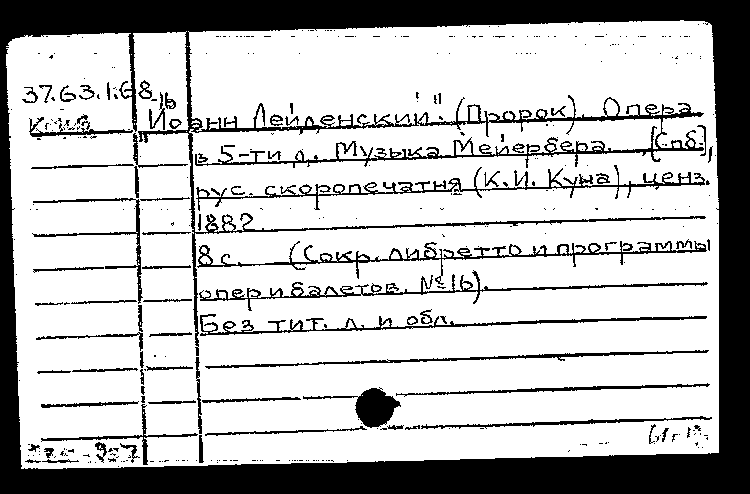 37.63.1.68-1б
"Иоанн Лейденский". (Пророк). Опера
в 5-ти д. Музыка Мейербера. [Спб],
рус. скоропечатня (К.И. Куна), ценз.
1882.
8 с. (Сокр. либретто и программы
опер и балетов. № 1б).
Без тит. л. и обл.